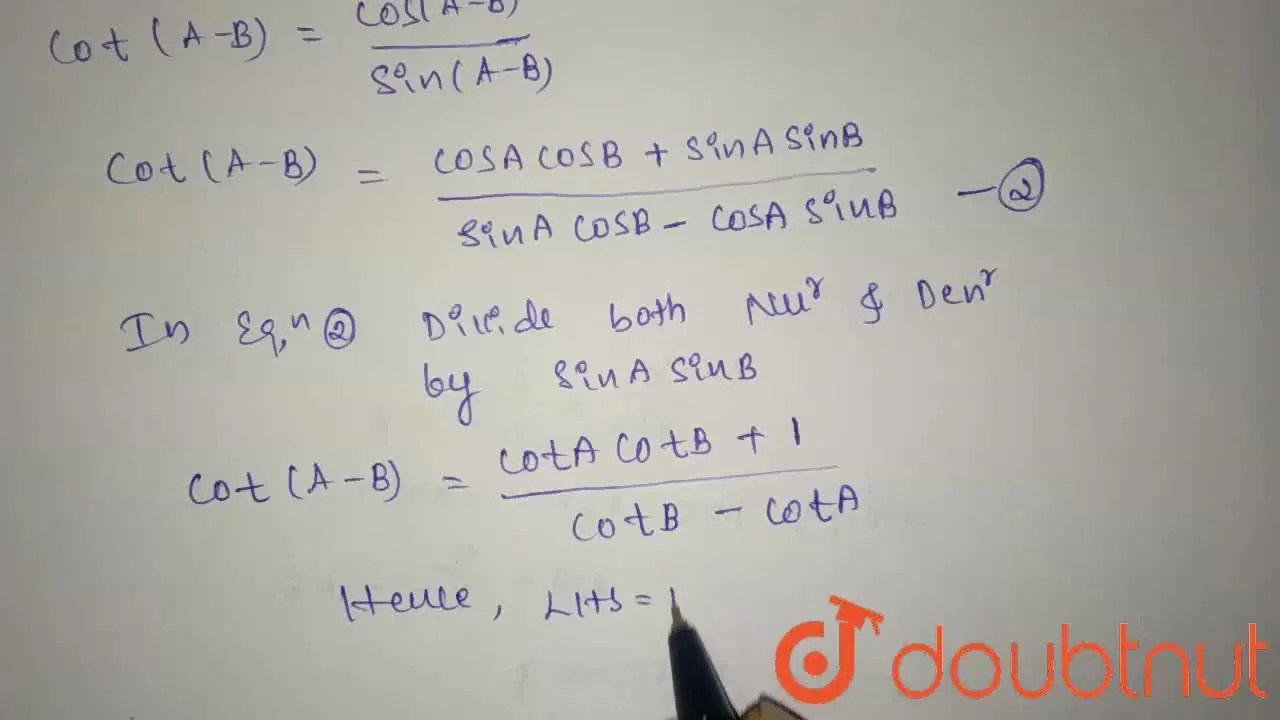 Cot (A-B) = cos(A-B) / Sin(A-B)
Cot (A-B) = COSA COSB + SinA SinB / SinA COSB - COSA SinB - ②
In Eqn ② Divide both Nur & Denr
by SinA SinB
Cot (A-B) = CotA CotB + 1 / CotB - CotA
Hence, LHS =
doubtnut